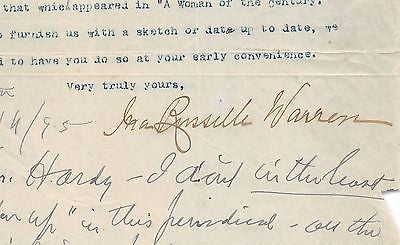 that which appeared in "A Woman of the Century.
to furnish us with a sketch or data up to date, we
d to have you do so at your early convenience.
Very truly yours,
Ina Russelle Warren
/95
Hardy - I don't in the least
up" in this periodical - all the